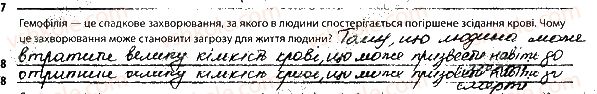 7
Гемофілія — це спадкове захворювання, за якого в людини спостерігається погіршене зсідання крові. Чому
це захворювання може становити загрозу для життя людини? Тому, що людина може
втратити велику кількість крові, що може призвести навіть до
8
8 втратити велику кількість крові, що може призвести навіть до
смерті